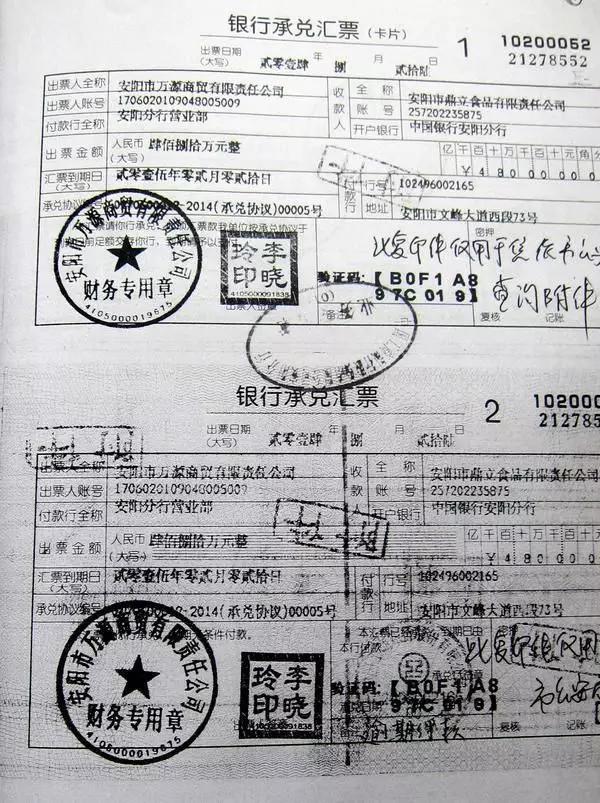 银行承兑汇票(卡片) 1 10200052
21278552
出票日期(大写) 贰零壹肆 年 捌 月 贰拾陆 日
出票人全称 安阳市万源商贸有限责任公司 收款人 全称 安阳市鼎立食品有限责任公司
出票人账号 1706020109048005009 账号 257202235875
付款行全称 安阳分行营业部 开户银行 中国银行安阳分行
出票金额 人民币(大写) 肆佰捌拾万元整 亿千百十万千百十元角分
￥480000
汇票到期日(大写) 贰零壹伍年零贰月零贰拾日 付款行 行号 102496002165
承兑协议编号 -2014(承兑协议)00005号 地址 安阳市文峰大道西段73号
密押
安阳市万源商贸有限责任公司
财务专用章
4105000019675
李晓玲印
4105000091838
出票人签章
验证码:【B0F1 A8
97C0 19】
备注
复核 记账
此复印件仅用于
查询附件
银行承兑汇票 2 1020005
2127855
出票日期(大写) 贰零壹肆 年 捌 月 贰拾陆 日
出票人全称 安阳市万源商贸有限责任公司 收款人 全称 安阳市鼎立食品有限责任公司
出票人账号 1706020109048005009 账号 257202235875
付款行全称 安阳分行营业部 开户银行 中国银行安阳分行
出票金额 人民币(大写) 肆佰捌拾万元整 亿千百十万千百十元
￥48000
汇票到期日(大写) 贰零壹伍年零贰月零贰拾日 付款行 行号 102496002165
承兑协议编号 -2014(承兑协议)00005号 地址 安阳市文峰大道西段73号
安阳市万源商贸有限责任公司
财务专用章
4105000019675
李晓玲印
4105000091838
验证码:【B0F1 A8
97C0 19】
承兑日期
复核 记账
此复印件仅用